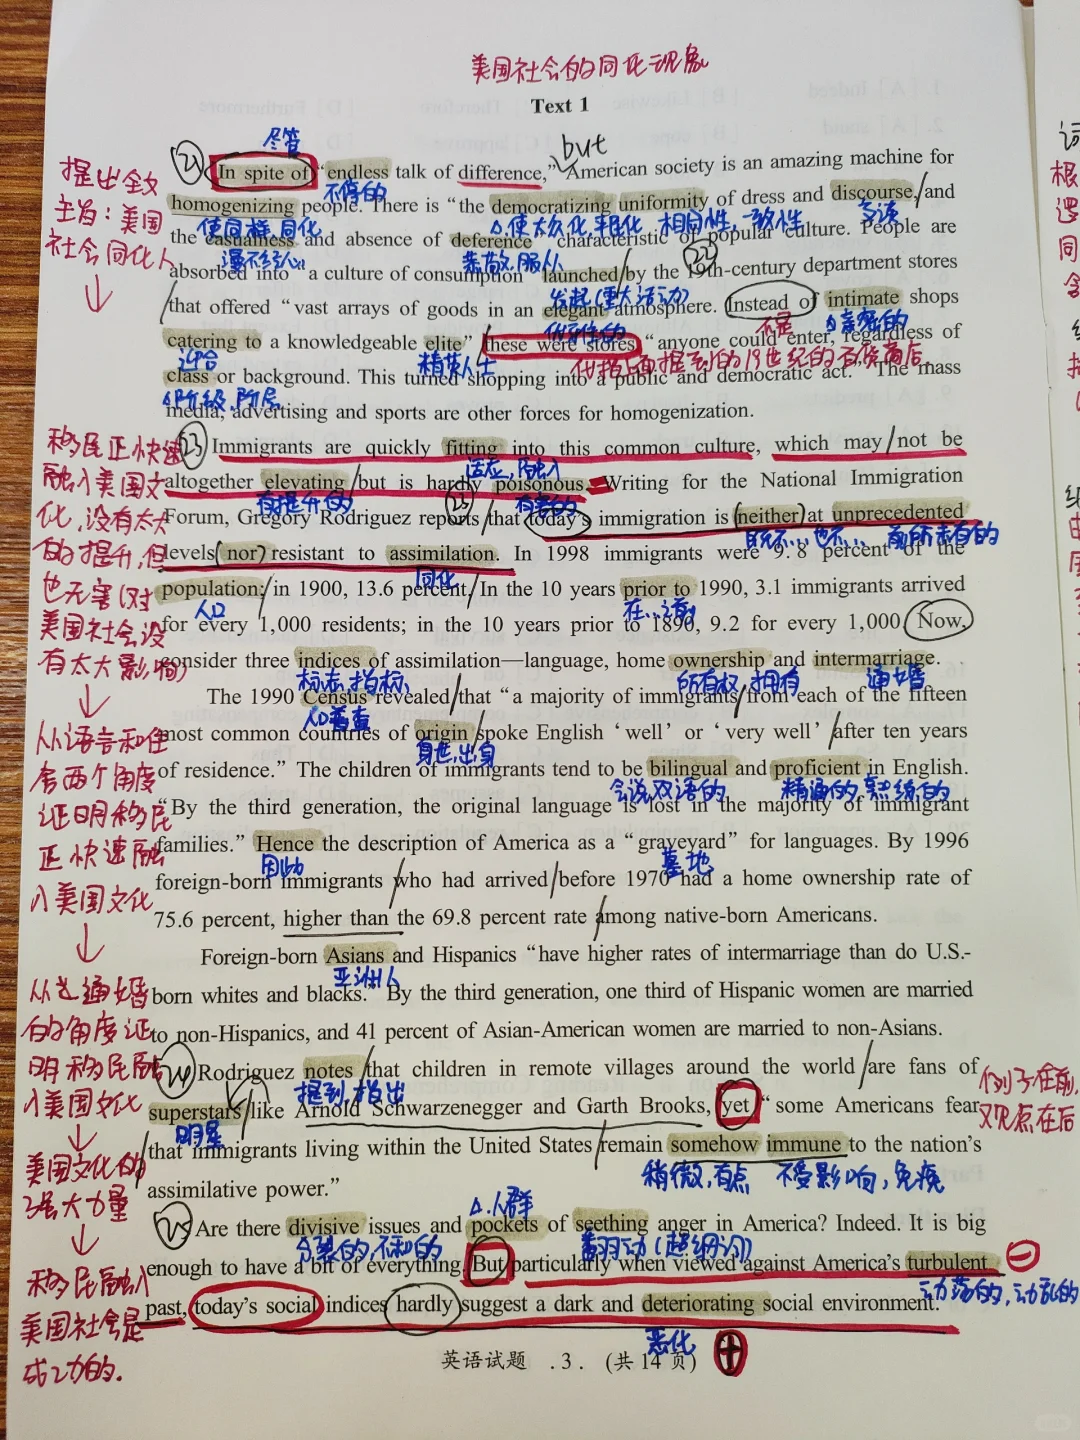 美国社会的同化现象
Text 1
尽管
but
21 In spite of “endless talk of difference,” American society is an amazing machine for
不停的
homogenizing people. There is “the democratizing uniformity of dress and discourse, and
使同样,同化 △使大众化,平民化 相同性,一致性 交谈
the casualness and absence of deference” characteristic of popular culture. People are
漫不经心 恭敬,服从 22
absorbed into “a culture of consumption” launched by the 19th-century department stores
发起(重大活动)
that offered “vast arrays of goods in an elegant atmosphere. Instead of intimate shops
优雅的 不是 △亲密的
catering to a knowledgeable elite” these were stores “anyone could enter, regardless of
迎合 精英人士 代指上面提到的19世纪的百货商店
class or background. This turned shopping into a public and democratic act.” The mass
△阶级,阶层
media, advertising and sports are other forces for homogenization.
23 Immigrants are quickly fitting into this common culture, which may not be
适应,融入
altogether elevating but is hardly poisonous. Writing for the National Immigration
有提升的 23 有毒的
Forum, Gregory Rodriguez reports that today’s immigration is neither at unprecedented
既不...也不... 前所未有的
levels nor resistant to assimilation. In 1998 immigrants were 9.8 percent of the
同化
population; in 1900, 13.6 percent. In the 10 years prior to 1990, 3.1 immigrants arrived
人口 在...之前
for every 1,000 residents; in the 10 years prior to 1890, 9.2 for every 1,000 Now,
consider three indices of assimilation—language, home ownership and intermarriage.
标志,指标 所有权,拥有 通婚
The 1990 Census revealed that “a majority of immigrants from each of the fifteen
人口普查
most common countries of origin spoke English ‘well’ or ‘very well’ after ten years
身世,出身
of residence.” The children of immigrants tend to be bilingual and proficient in English.
会说双语的 精通的,熟练的
“By the third generation, the original language is lost in the majority of immigrant
families.” Hence the description of America as a “graveyard” for languages. By 1996
因此 墓地
foreign-born immigrants who had arrived before 1970 had a home ownership rate of
75.6 percent, higher than the 69.8 percent rate among native-born Americans.
Foreign-born Asians and Hispanics “have higher rates of intermarriage than do U.S.-
亚洲人
born whites and blacks.” By the third generation, one third of Hispanic women are married
to non-Hispanics, and 41 percent of Asian-American women are married to non-Asians.
24 Rodriguez notes that children in remote villages around the world are fans of
提到,指出
superstars like Arnold Schwarzenegger and Garth Brooks, yet “some Americans fear
明星
that immigrants living within the United States remain somehow immune to the nation’s
稍微,有点 不受影响,免疫
assimilative power.”
△人群
25 Are there divisive issues and pockets of seething anger in America? Indeed. It is big
分裂的,不和的 翻动(超纲词)
enough to have a bit of everything. But particularly when viewed against America’s turbulent
动荡的,动乱的
past, today’s social indices hardly suggest a dark and deteriorating social environment.
恶化
英语试题 .3. (共14页)
提出全文
主旨:美国
社会同化人
↓
移民正快速
融入美国文
化,没有太大
的提升,但
也无害(对
美国社会没
有太大影响)
↓
从语言和住
房两个角度
证明移民
正快速融
入美国文化
↓
从通婚
的角度证
明移民融
入美国文化
↓
美国文化的
强大力量
↓
移民融入
美国社会是
成功的.
例子在前,
观点在后
词
根
逻
同